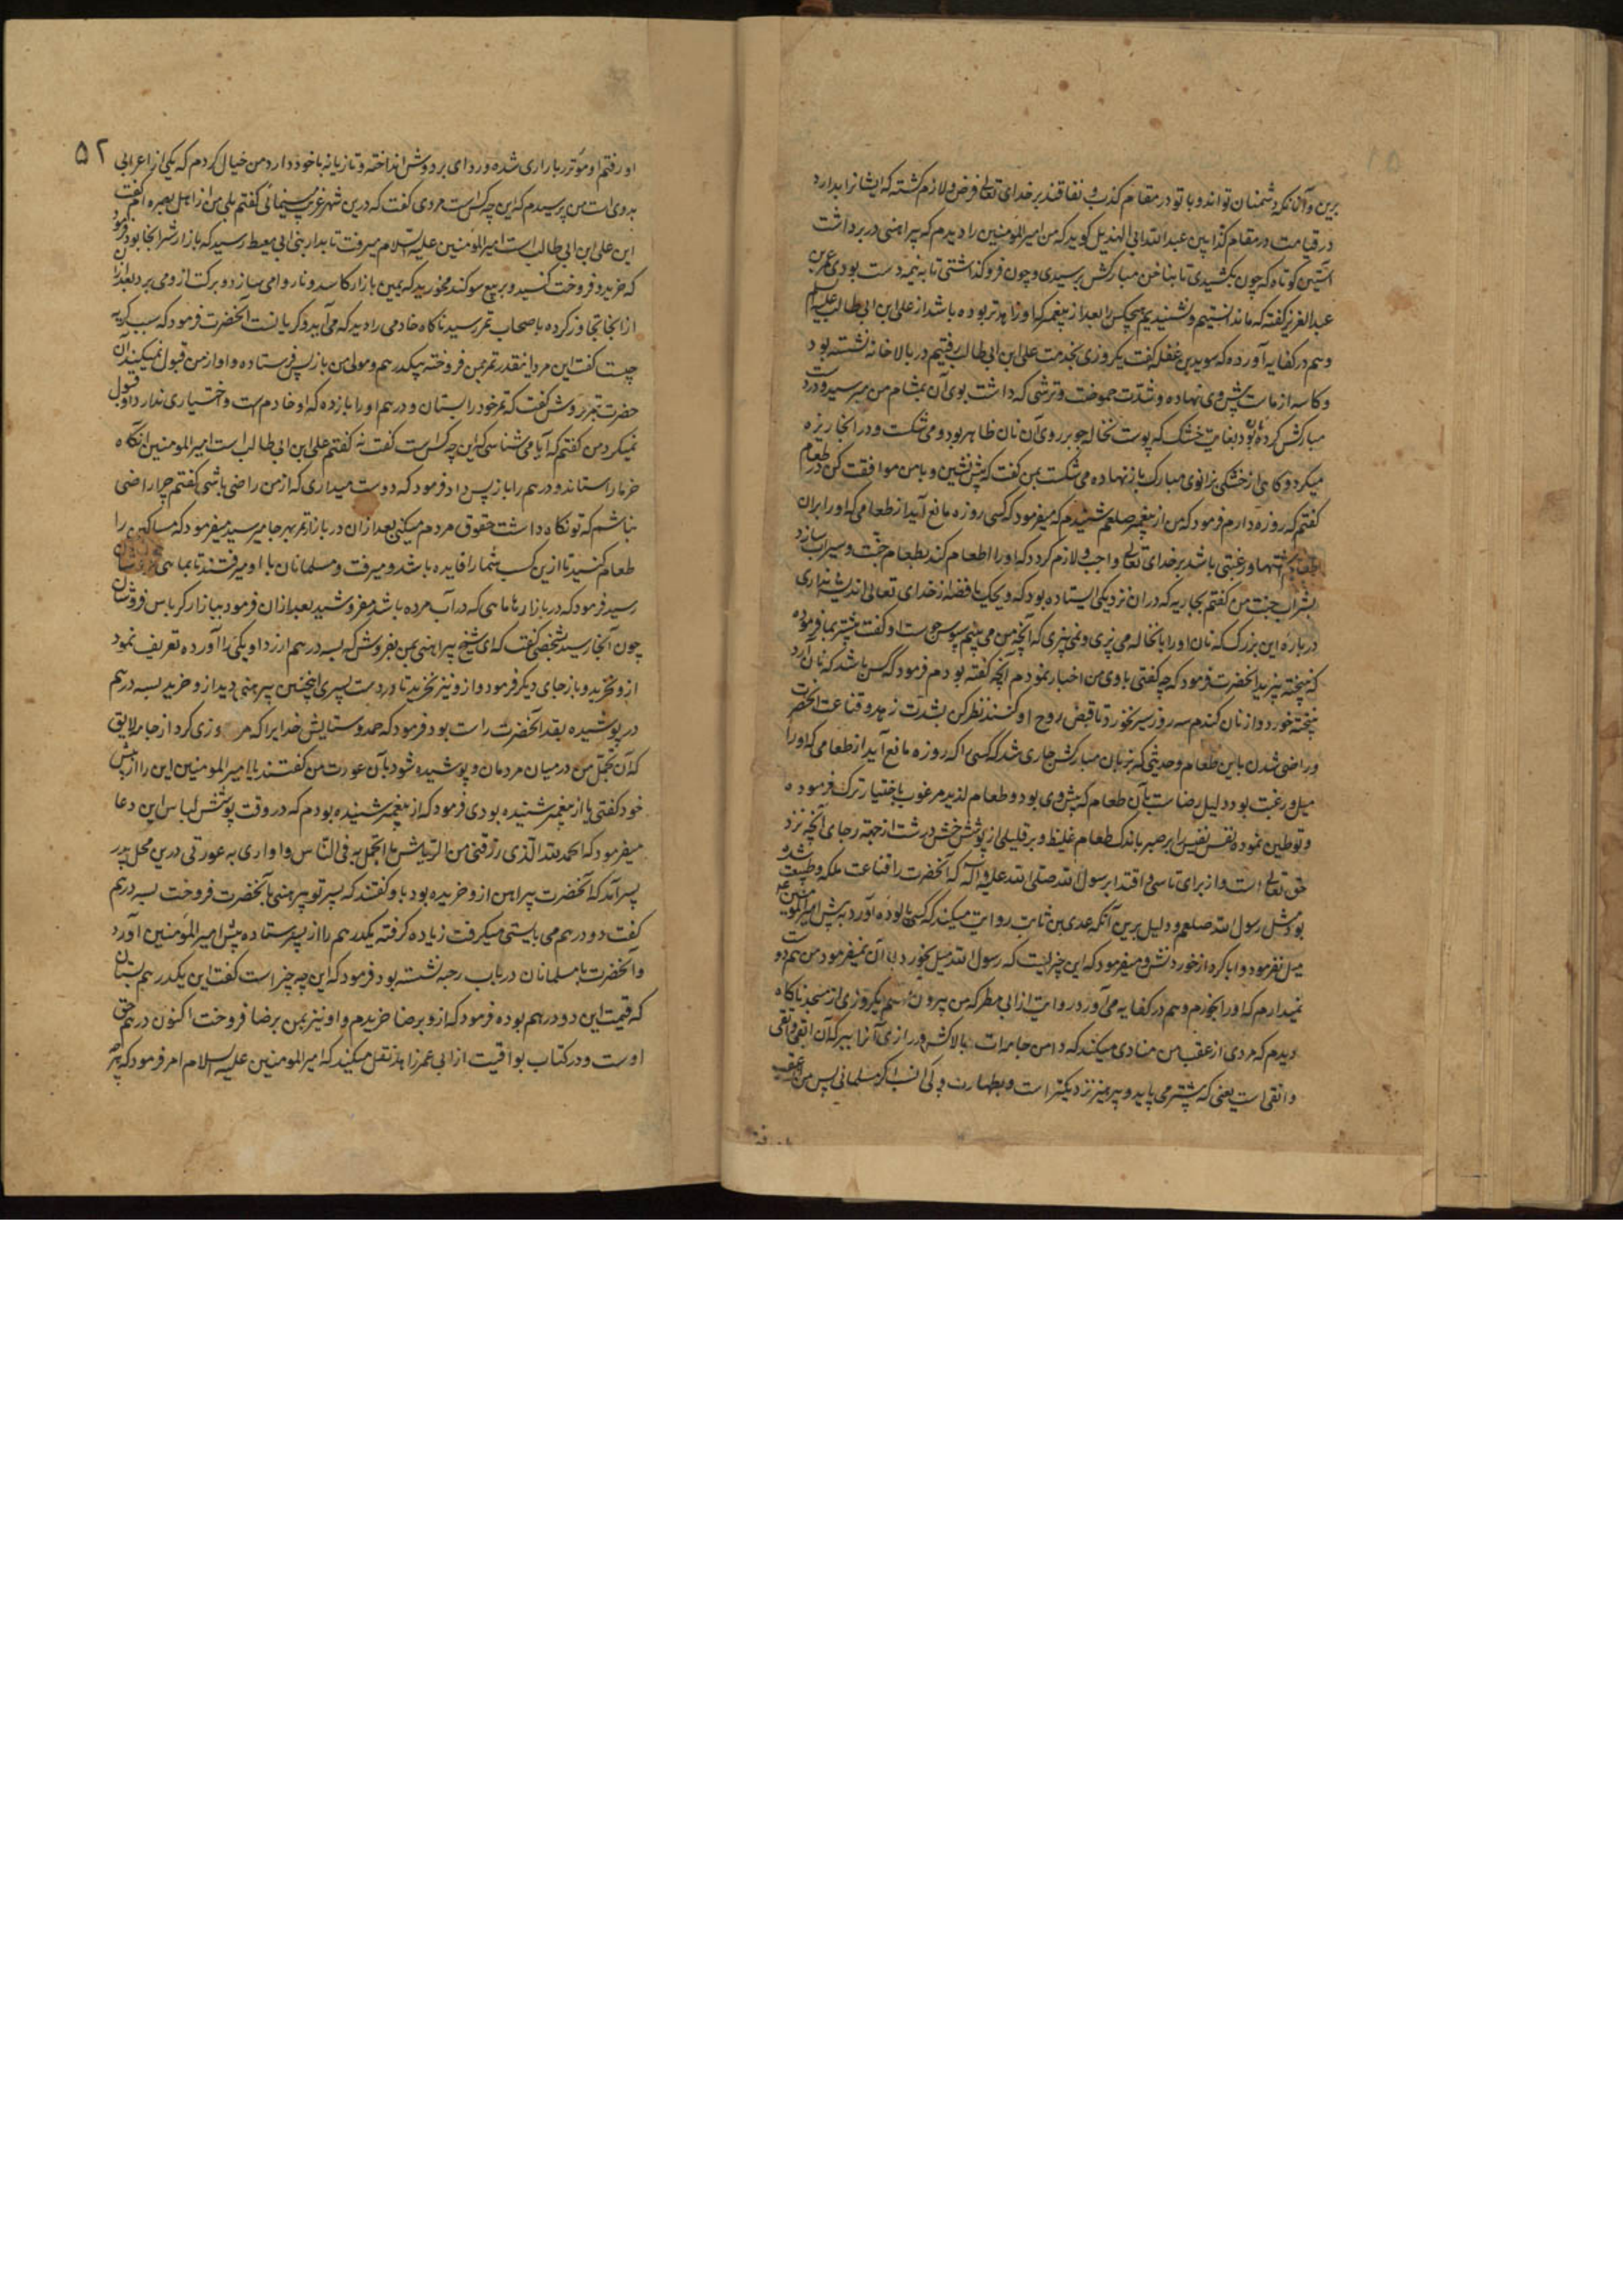 برین و آنانکه دشمنان تواند و با تو در مقام کذب و نفاقند بر خدای تعالی فرض و لازم گشته که ایشانرا بدارد
در قیامت در مقام کذابین عبدالله ابی الهذیل گوید که من امیرالمؤمنین را دیدم که پیراهنی در بر داشت
آستین کوتاه که چون بکشیدی تا بناخن مبارکش برسیدی و چون فرو گذاشتی تا به نیمه دست بودی عمر بن
عبدالعزیز گفته که ما ندانستیم و نشنیدیم هیچکس را بعد از پیغمبر که او زاهدتر بوده باشد از علی ابن ابی طالب علیه السلام
و هم در کفایه آورده که سوید بن غفله گفت یکروزی بخدمت علی ابن ابی طالب رفتیم در بالا خانه نشسته بود
و کاسه از ماست پیش وی نهاده و شدت حموضت و ترشی که داشت بوی آن بمشام من میرسید و در دست
مبارکش گرده نانی بود بغایت خشک که پوست نخاله جو بر روی آن نان ظاهر بود و می شکست و در آنجا ریزه
میکرد و گاهی از خشکی بزانوی مبارک باز نهاده می شکست بمن گفت که پیش نشین و با من موافقت کن در طعام
گفتم که روزه دارم فرمود که من از پیغمبر صلعم شنیدم که میفرمود که کسی روزه مانع آید از طعامی که او را بران
طعام اشتها و رغبتی باشد بر خدای تعالی واجب و لازم گردد که او را اطعام کند بطعام جنت و سیراب سازد
بشراب جنت من گفتم بجاریه که در آن نزدیکی ایستاده بود که ویحک یا فضه از خدای تعالی اندیشه نداری
درباره این بزرگ که نان او را با نخاله می پزی و نمی پیزی که آنچه من می بینم سبوس جو است او گفت پیشتر بما فرموده
که نبیخته بپزید آنحضرت فرمود که چه گفتی با وی من اخبار نمودم آنچه گفته بودم فرمود که کسی باشد که نان آرد
بیخته خورد و از نان گندم سه روز سیر نخورد تا قبض روح او کنند نظر کن بشدت زهد و قناعت آنحضرت
و راضی شدن باین طعام و حدیثی که بزبان مبارکش جاری شد که کسی را که روزه مانع آید از طعامی که او را
میل و رغبت بود دلیل رضاست بآن طعام که پیش وی بود و طعام لذیذ مرغوب باختیار ترک فرموده
و توطین نموده نفس نفیس را بر صبر باندک طعام غلیظ و بر قلیلی از پوشش خشن درشت از جهة رجای آنچه نزد
حق تعالی است و از برای تاسی و اقتدا برسول الله صلی الله علیه و آله که آنحضرت را قناعت ملکه و طبیعت شده
بود مثل رسول الله صلعم و دلیل برین آنکه عدی بن ثابت روایت میکند که کسی پالوده آورد به پیش امیرالمؤمنین علیه
میل نفرمود و ابا کرد از خوردنش و میفرمود که این چیزیست که رسول الله میل بخورد با آن نمیفرمود من هم دوست
نمیدارم که او را بخورم و هم در کفایه می آورد روایت از ابی مطر که من بیرون شدم یکروزی از مسجد ناگاه
دیدم که مردی از عقب من منادی میکند که دامن جامه ات بالا کش و درازی آنرا ببر که آن ابقی و اتقی
و انقی است یعنی که بیشتر می پاید و بپرهیز نزدیکتر است و بطهارت و پاکی انسب اگر مسلمانی پس من از عقب
او رفتم او موتزر بازاری شده و ردای بر دوش انداخته و تازیانه با خود دارد من خیال کردم که یکی از اعرابی
بدوی است من پرسیدم که این چه کس است مردی گفت که درین شهر غریب مینمائی گفتم بلی من از اهل بصره ام گفت
این علی ابن ابی طالب است امیرالمؤمنین علیه السلام میرفت تا بدار بنی ابی معیط رسید که بازار شتر آنجا بود فرمود
که خرید و فروخت کنید و بر بیع سوگند مخورید که یمین بازار کاسد و ناروا می سازد و برکت از وی میبرد بعد از آن
از آنجا تجاوز کرده باصحاب تمر رسید ناگاه خادمی را دید که می آید و گریانست آنحضرت فرمود که سبب گریه
چیست گفت این مرد اینقدر تمر بمن فروخته بیکدرهم و مولی من باز پس فرستاده و او از من قبول نمیکند آن
حضرت بتمر فروش گفت که تمر خود را بستان و درهم او را باز ده که او خادم است و اختیاری ندارد او قبول
نمیکرد من گفتم که آیا می شناسی که این چه کس است گفت نه گفتم علی ابن ابی طالب است امیرالمومنین آنگاه
خرما را ستاند و درهم را باز پس داد فرمود که دوست میداری که از من راضی باشی گفتم چرا راضی
نباشم که تو نگاه داشت حقوق مردم میکنی بعد از آن در بازار تمر بهر جا میرسید میفرمود که مساکین را
طعام کنید تا ازین کسب شما را فایده باشد و میرفت و مسلمانان با او میرفتند تا بماهی فروشان
رسید فرمود که در بازار ما ماهی که در آب مرده باشد مفروشید بعد از آن فرمود ببازار کرباس فروشان
چون آنجا رسید شخصی گفت که ای شیخ پیراهنی بمن بفروش که بسه درهم ارزد او یکی را آورده تعریف نمود
ازو نخرید و باز جای دیگر فرمود و ازو نیز نخرید تا در دست پسری اینچنین پیرهنی دید ازو خرید بسه درهم
در پوشیده بقد آنحضرت راست بود فرمود که حمد و ستایش خدایرا که مرا روزی کرد از جامه لایق
که آن تجمل من در میان مردمان و پوشیده شود بآن عورت من گفتند یا امیرالمومنین این را از پیش
خود گفتی یا از پیغمبر شنیده بودی فرمود که از پیغمبر شنیده بودم که در وقت پوشش لباس این دعا
میفرمود که الحمد لله الذی رزقنی من الریاش ما اتجمل به فی الناس و اواری به عورتی درین محل پدر
پسر آمد که آنحضرت پیراهن ازو خریده بود باو گفتند که پسر تو پیرهنی بآنحضرت فروخت بسه درهم
گفت دو درهم می بایستی میگرفت زیاده گرفته یکدرهم را از پسر ستاده پیش امیرالمؤمنین آورد
و آنحضرت با مسلمانان در باب رحبه نشسته بود فرمود که این چه چیز است گفت این یکدرهم بستان
که قیمت این دو درهم بوده فرمود که ازو برضا خریدم و او نیز بمن برضا فروخت اکنون درهم حق
اوست و در کتاب یواقیت از ابی عمر زاهد نقل میکند که امیرالمومنین علیه السلام امر فرمود که
۵۲